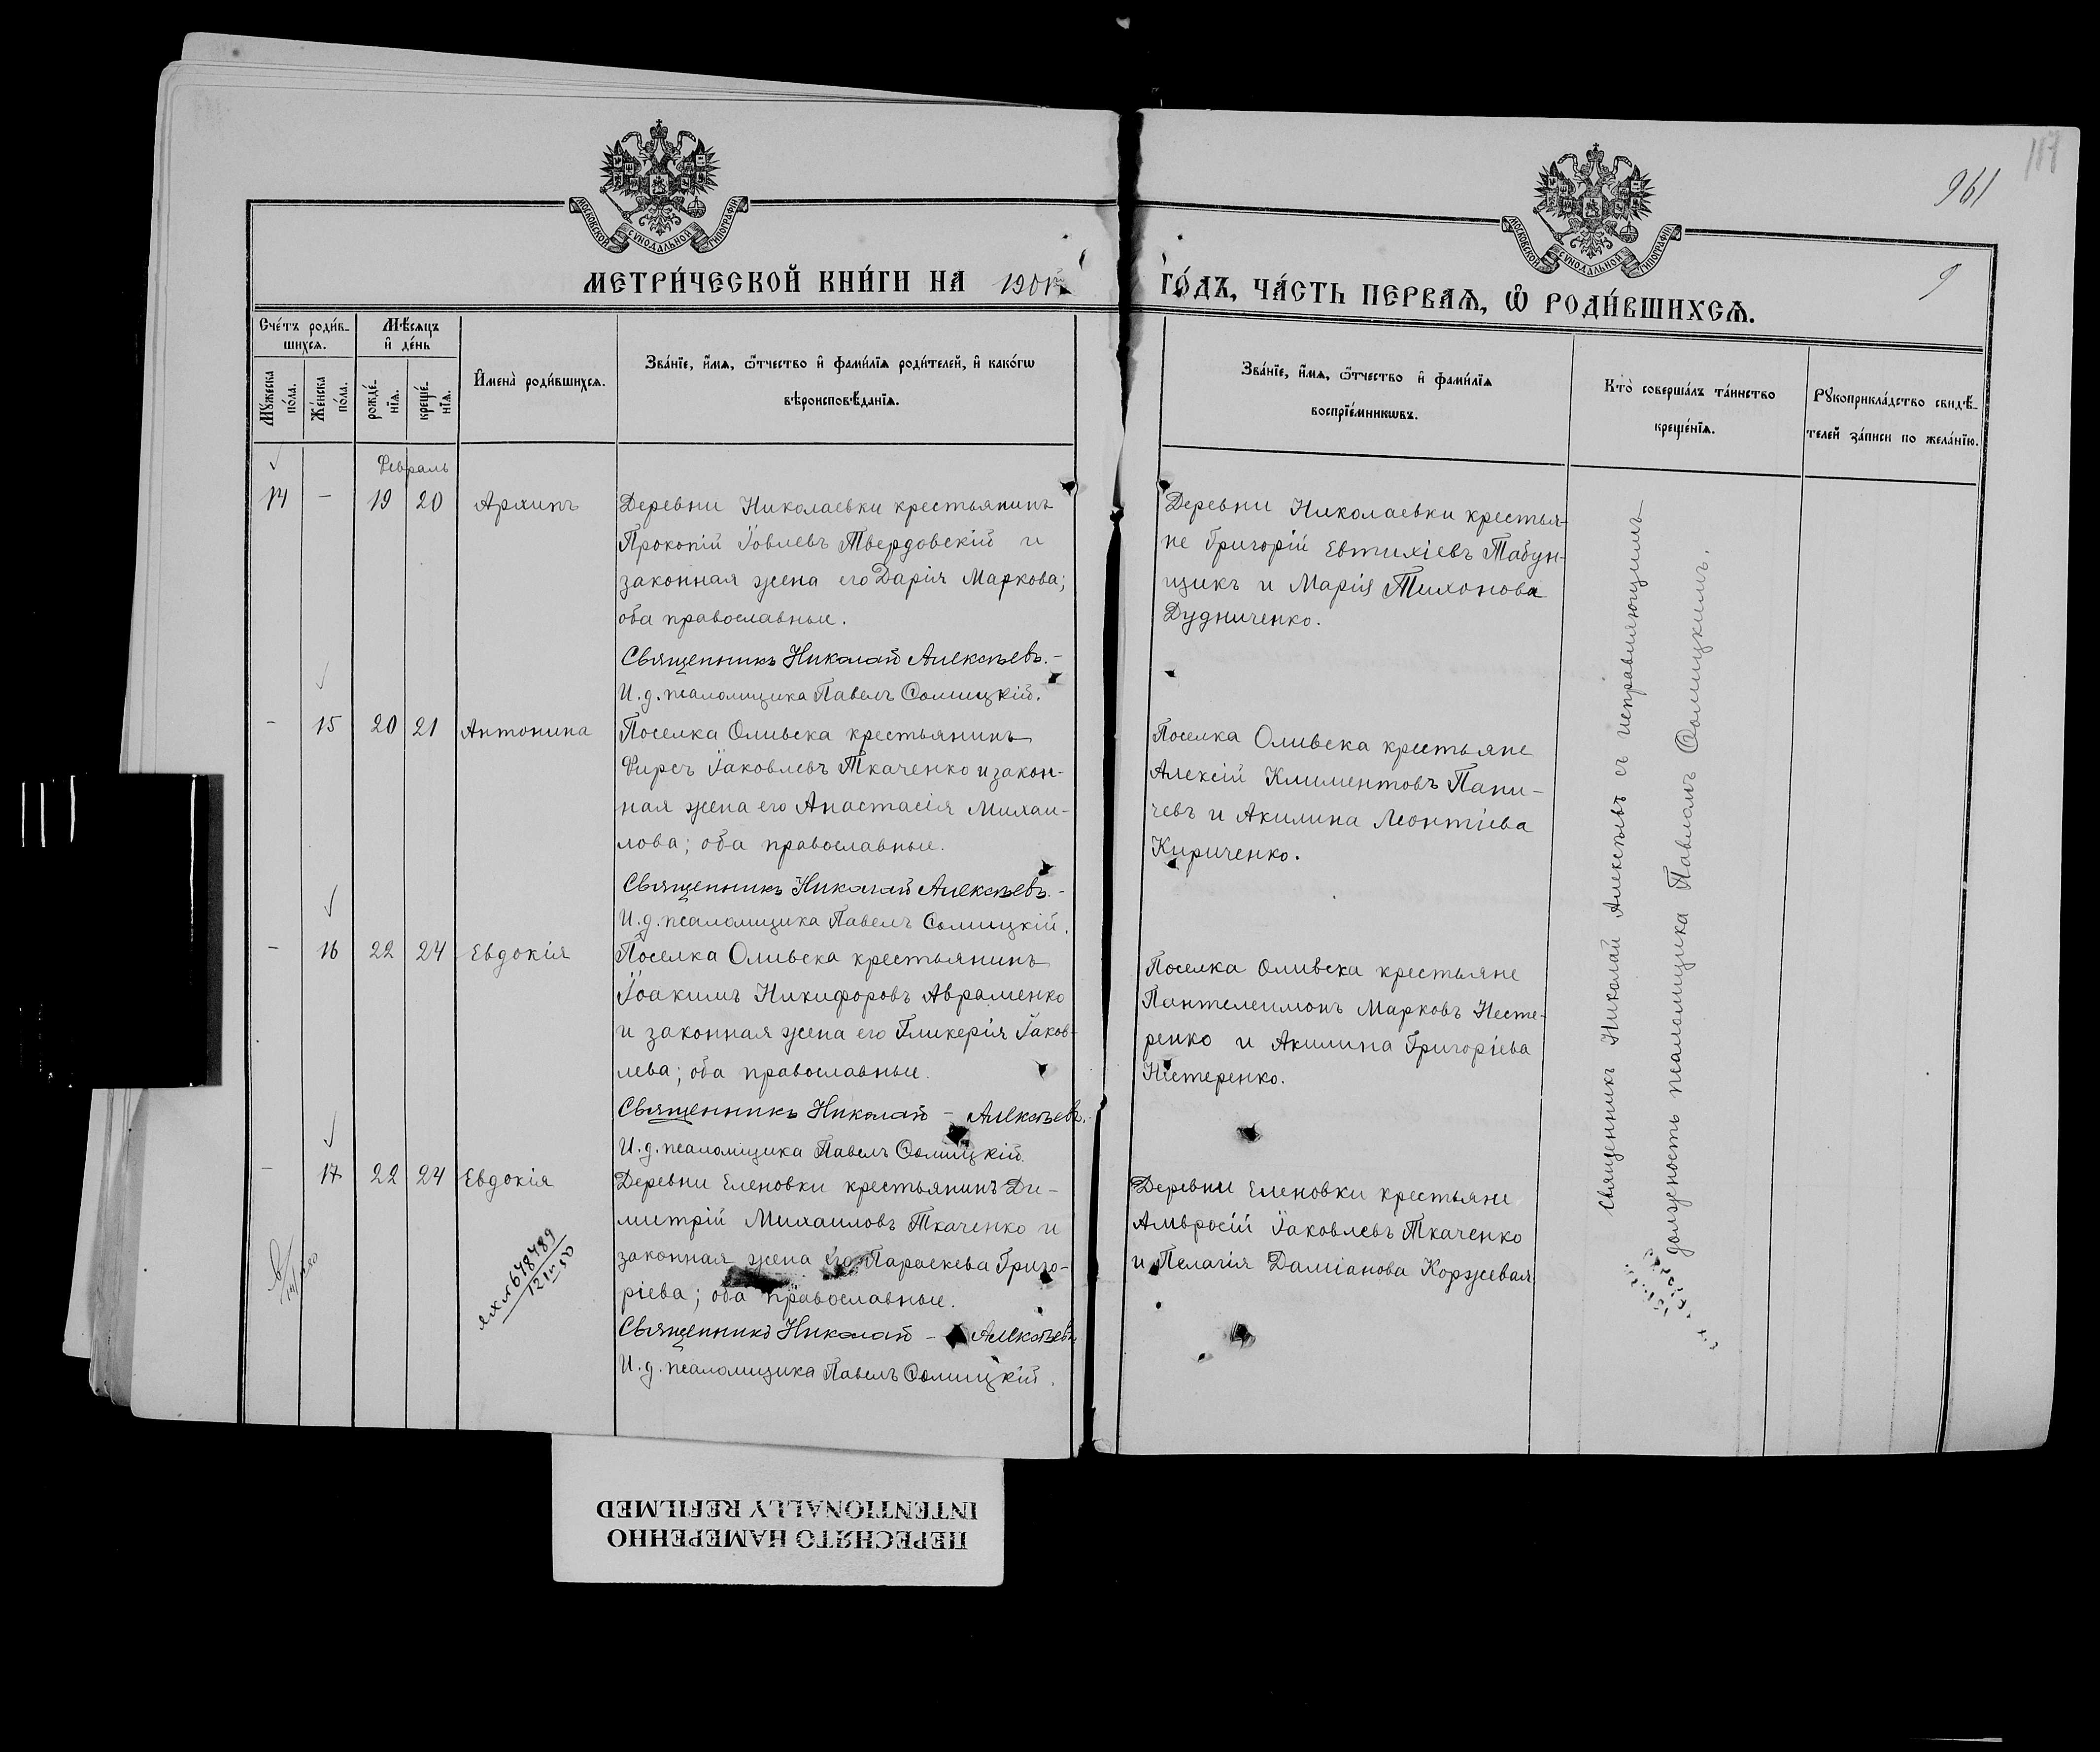 117
961
9
МОСКОВСКОЙ СѴНОДАЛЬНОЙ ТИПОГРАФІИ
МОСКОВСКОЙ СѴНОДАЛЬНОЙ ТИПОГРАФІИ
МЕТРИ́ЧЕСКОЙ КНИ́ГИ НА 1901 ГО́ДЪ, ЧА́СТЬ ПЕРВАѦ, Ѽ РОДИ́ВШИХСѦ.
Сче́тъ роди́в-
шихсѧ.
Мꙋ́жеска по́ла.
Же́нска по́ла.
Мѣ́сѧцъ и҆ де́нь
рожде́-
нїѧ.
креще́-
нїѧ.
И҆мена̀ роди́вшихсѧ.
Зва́нїе, и҆́мѧ, ѻ҆́тчество и҆ фами́лїѧ роди́телей, и҆ како́гѡ
вѣроисповѣ́данїѧ.
Зва́нїе, и҆́мѧ, ѻ҆́тчество и҆ фами́лїѧ
воспрїе́мникѡвъ.
Кто̀ соверша́лъ та́инство
креще́нїѧ.
Рꙋкоприкла́дство свидѣ́-
телей за́писи по жела́нїю.
Февраль
14 - 19 20 Архипъ
Деревни Николаевки крестьянинъ
Прокопій Іовлевъ Твердовскій и
законная жена его Дарія Маркова;
оба православные.
Священникъ Николай Алексѣевъ.-
И.д. псаломщика Павелъ Солицкій.
Деревни Николаевки крестья-
не Григорій Евтихіевъ Табун-
щикъ и Марія Тихонова
Дудниченко.
- 15 20 21 Антонина
Поселка Оливска крестьянинъ
Фирсъ Іаковлевъ Ткаченко и закон-
ная жена его Анастасія Михаи-
лова; оба православные.
Священникъ Николай Алексѣевъ.-
И.д. псаломщика Павелъ Солицкій.
Поселка Оливска крестьяне
Алексій Климентовъ Пани-
чевъ и Акилина Леонтіева
Кириченко.
- 16 22 24 Евдокія
Поселка Оливска крестьянинъ
Іоакимъ Никифоровъ Авраменко
и законная жена его Гликерія Іаков-
лева; оба православные.
Священникъ Николай - Алексѣевъ.
И.д. псаломщика Павелъ Солицкій.
Поселка Оливска крестьяне
Пантелеимонъ Марковъ Несте-
ренко и Акилина Григоріева
Нестеренко.
- 17 22 24 Евдокія
Деревни Еленовки крестьянинъ Ди-
митрій Михаиловъ Ткаченко и
законная жена его Параскева Григо-
ріева; оба православные.
Священникъ Николай - Алексѣевъ
И.д. псаломщика Павелъ Солицкій.
Деревни Еленовки крестьяне
Амвросій Іаковлевъ Ткаченко
и Пелагія Даміанова Коржевая
Священникъ Николай Алексѣевъ съ исправляющимъ
должность псаломщика Павломъ Солицкимъ.
ЯХ № 678489
ПЕРЕСНЯТО НАМЕРЕННО
INTENTIONALLY REFILMED